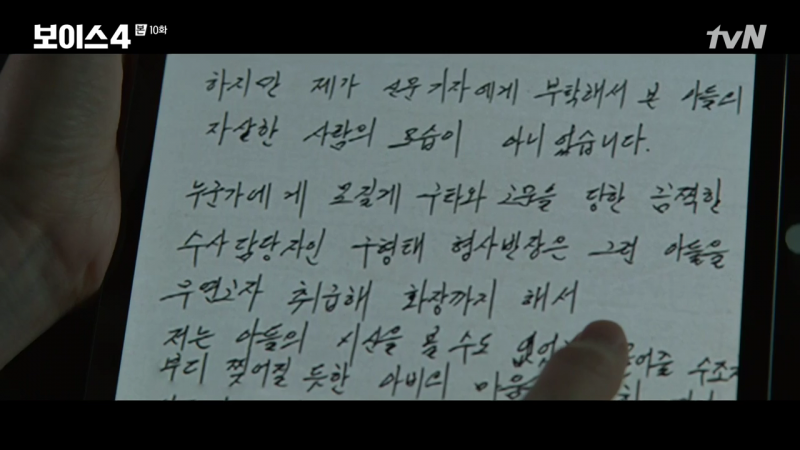 보이스4 본 10화
tvN
하지만 제가 신문기자에게 부탁해서 본 아들의
자살한 사람의 모습이 아니었습니다.
누군가에게 모질게 구타와 고문을 당한 끔찍한
수사담당자인 구형태 형사반장은 그런 아들을
무연고자 취급해 화장까지 해서
저는 아들의 시신을 볼 수도 없었
부디 찢어질 듯한 아비의 마음